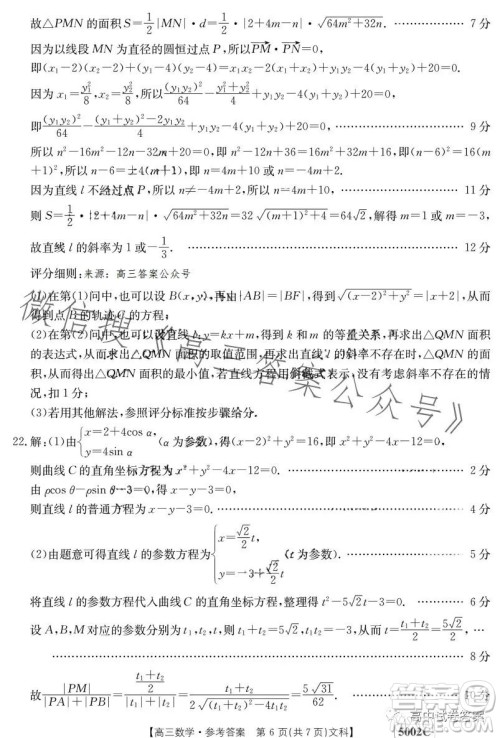 故△PMN 的面积 S=1/2|MN|·d=1/2·|2+4m−n|·√(64m²+32n). 7 分
因为以线段 MN 为直径的圆恒过点 P,所以PM·PN=0,
即(x₁−2)(x₂−2)+(y₁−4)(y₂−4)=x₁x₂−2(x₁+x₂)+y₁y₂−4(y₁+y₂)+20=0.
因为 x₁=y₁²/8,x₂=y₂²/8,所以(y₁y₂)²/64−(y₁²+y₂²)/4+y₁y₂−4(y₁+y₂)+20=0,
即(y₁y₂)²/64−((y₁+y₂)²−2y₁y₂)/4+y₁y₂−4(y₁+y₂)+20=0. 9 分
所以 n²−16m²−12n−32m+20=0,即 n²−12n+36=16m²+32m+16,即(n−6)²=16(m
+1)²,所以 n−6=±4(m+1),即 n=4m+10 或 n=−4m+2.
因为直线 l 不经过点 P,所以 n≠−4m+2,所以 n=4m+10. 11 分
则 S=1/2·|2+4m−n|·√(64m²+32n)=32√((m+1)²+4)=64√2,解得 m=1 或 m=−3,
故直线 l 的斜率为 1 或−1/3. 12 分
评分细则:来源:高三答案公众号
(1)在第(1)问中,也可以设 B(x,y),再由|AB|=|BF|,得到√((x−2)²+y²)=|x+2|,从而
得到点 B 的轨迹 C 的方程.
(2)在第(2)问中,也可以设直线 l:y=kx+m,得到 k 和 m 的等量关系,再求出△QMN 面积
的表达式,从而得到△QMN 面积的取值范围,再求出直线 l 的斜率不存在时△QMN 的面
积,从而得出△QMN 面积的最小值,若直线方程用到斜率,没有说明直线的斜率不存在的情
况,扣 1 分;
(3)若用其他解法,参照评分标准按步骤给分.
22. 解:(1)由{x=2+4cos α, y=4sin α (α 为参数),得(x−2)²+y²=16,即 x²+y²−4x−12=0,
则曲线 C 的直角坐标方程为 x²+y²−4x−12=0. 2 分
由 ρcos θ−ρsin θ−3=0,得 x−y−3=0,
则直线 l 的普通方程为 x−y−3=0. 4 分
(2)由题意可得直线 l 的参数方程为{x=√2/2 t, y=−3+√2/2 t (t 为参数). 5 分
将直线 l 的参数方程代入曲线 C 的直角坐标方程,整理得 t²−5√2t−3=0. 6 分
设 A,B,M 对应的参数分别为 t₁,t₂,t,则 t₁+t₂=5√2,t₁t₂=−3,从而 t=(t₁+t₂)/2=5√2/2,
8 分
故|PM|/(|PA|+|PB|)=((t₁+t₂)/2)/|t₁−t₂|=(t₁+t₂)/(2√((t₁+t₂)²−4t₁t₂))=5√31/62. 10 分
【高三数学·参考答案 第 6 页(共 7 页)文科】
5002C
微信搜《高三答案公众号》
高中试卷答案